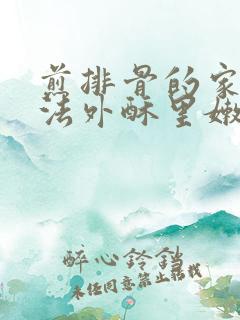 煎排骨的家
法外酥里嫩
醉心铃铛
未经同意禁止转载